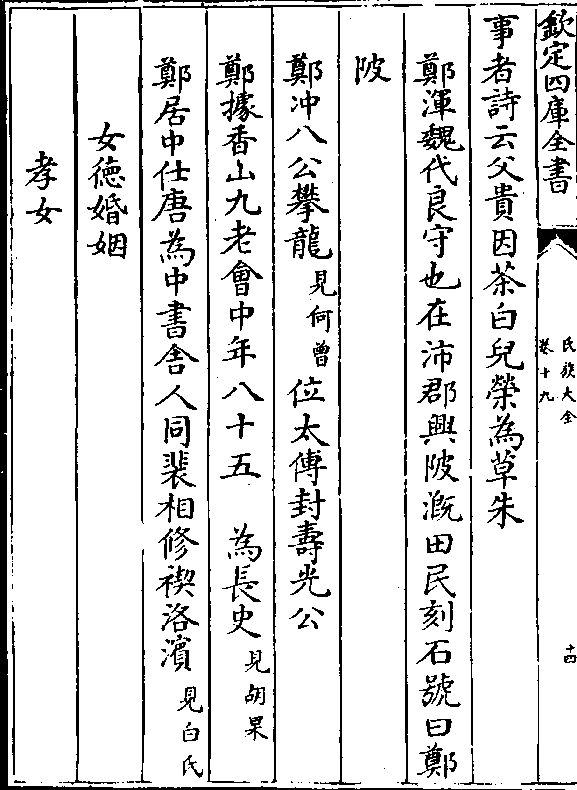 欽定四庫全書
氏族大全
卷十九
十四
事者詩云父貴因茶白兒榮為草朱
鄭渾魏代良守也在沛郡興陂溉田民刻石號曰鄭
陂
鄭冲八公攀龍見何曾位太傅封壽光公
鄭據香山九老會中年八十五 為長史見胡杲
鄭居中仕唐為中書舍人同裴相修禊洛濱見白氏
女徳婚姻
孝女